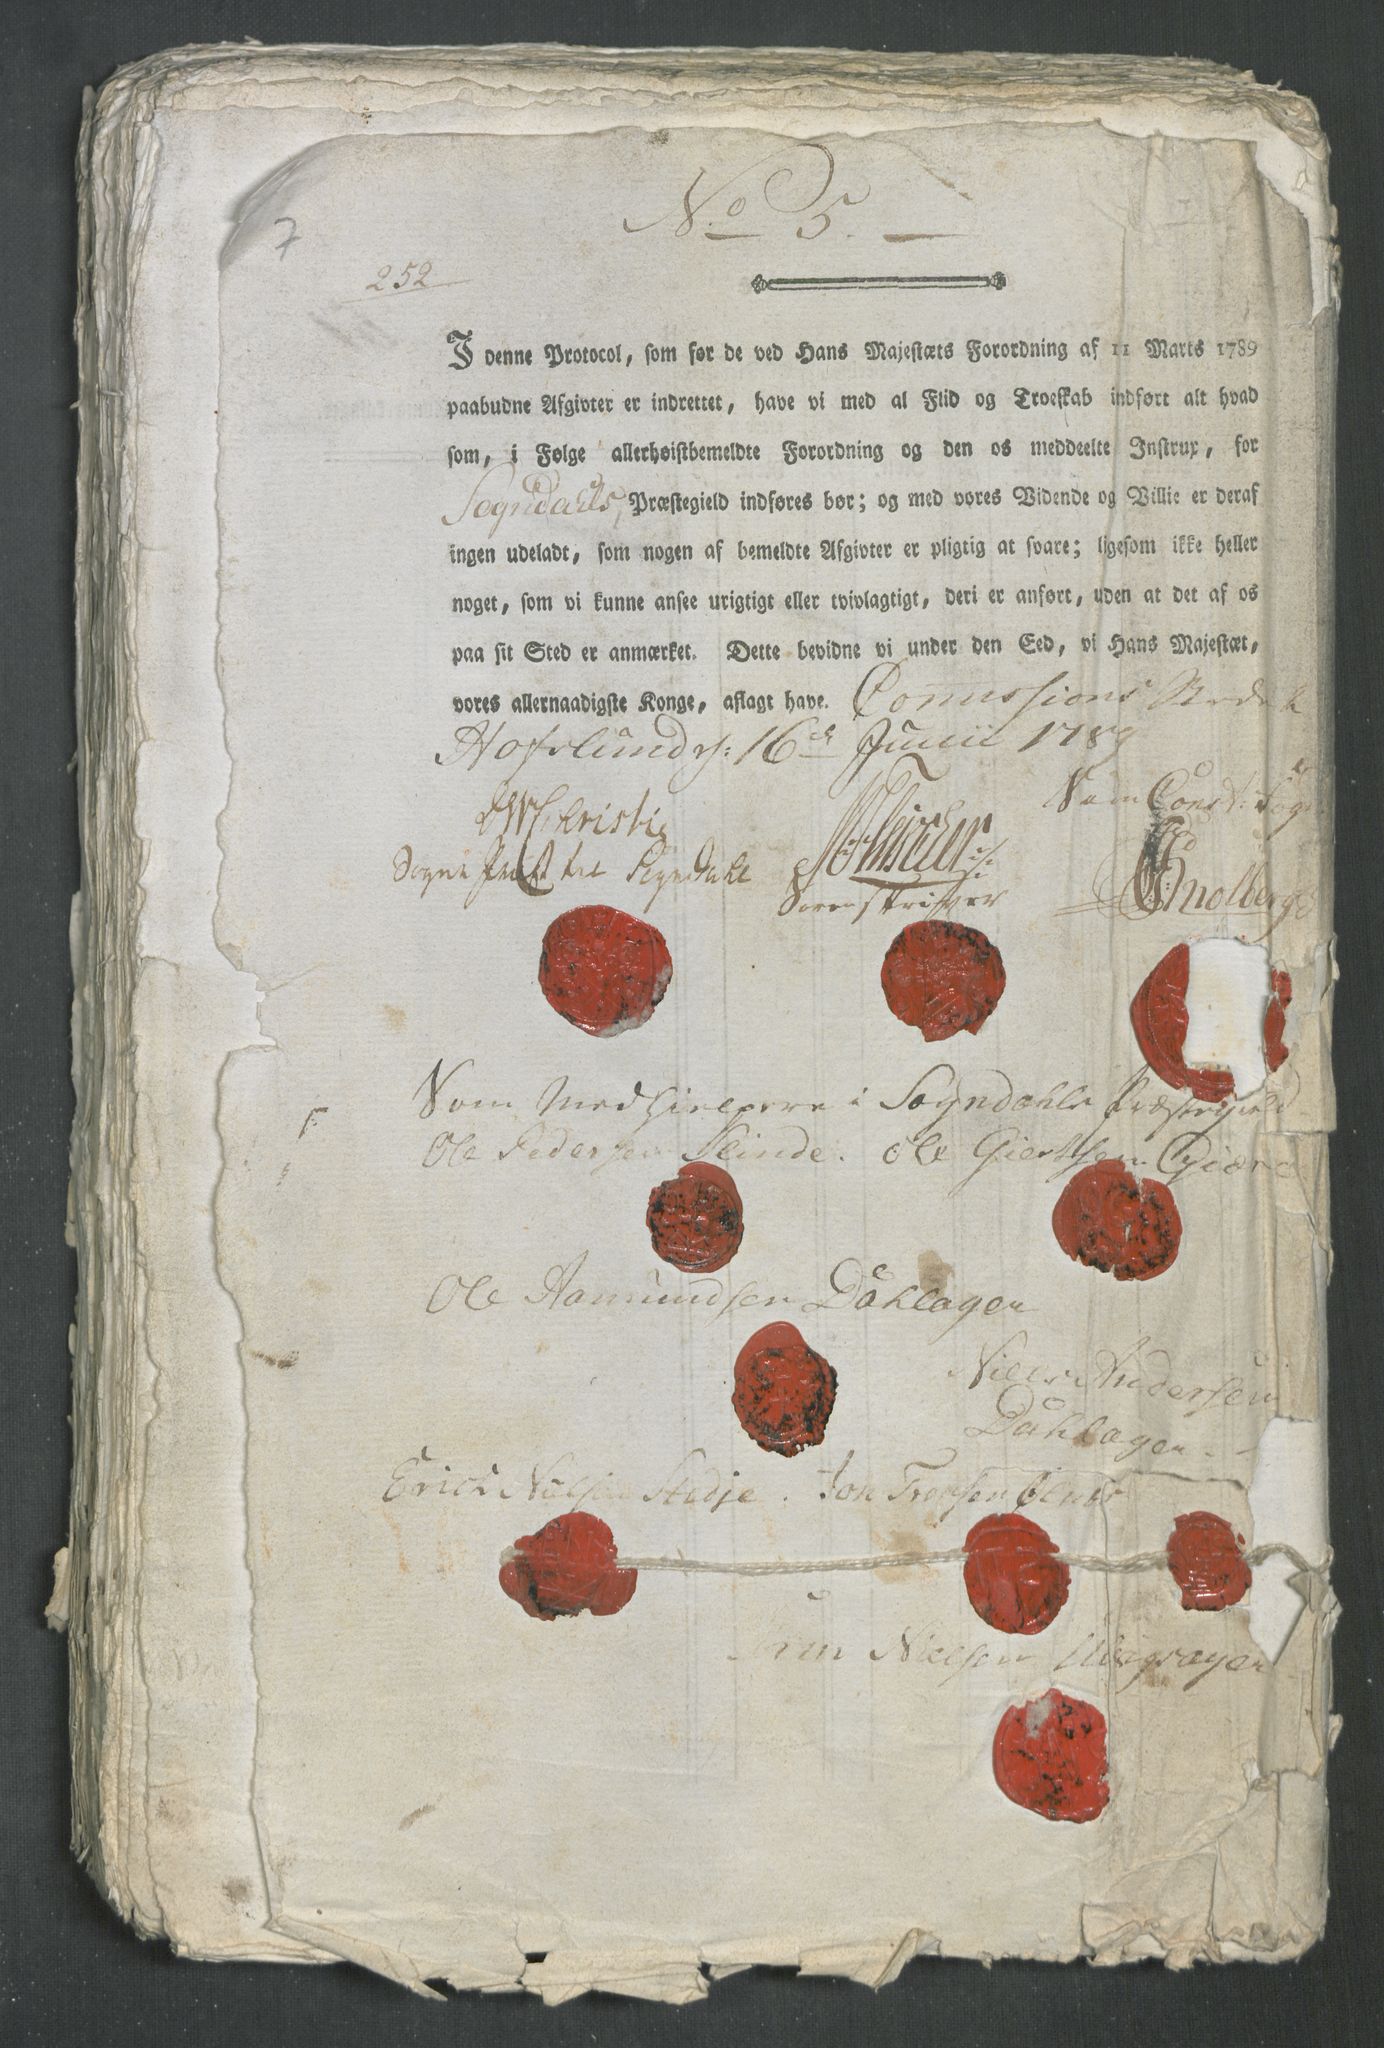 No 5.
7
252
I denne Protocol, som før de ved Hans Majestæts Forordning af 11 Marts 1789
paabudne Afgivter er indrettet, have vi med al Flid og Troeskab indført alt hvad
som, i Følge allerhøistbemeldte Forordning og den os meddeelte Instrux, for
Sogndahls Præstegield indføres bør; og med vores Vidende og Villie er deraf
ingen udeladt, som nogen af bemeldte Afgivter er pligtig at svare; ligesom ikke heller
noget, som vi kunne ansee urigtigt eller tvivlagtigt, deri er anført, uden at det af os
paa sit Sted er anmærket. Dette bevidne vi under den Eed, vi Hans Majestæt,
vores allernaadigste Konge, aflagt have. Comissions
16de Junii 1789
DWChristie Som Const:
Sogne Præst til Sogndahl Sorenskriver
Som Medhielpere i Sogndahls Præstegield
Ole Pedersen Slinde. Ole Giertsen
Ole Aamundsen Dahlagen
Niels Andersen
Dahlagen
Erich Nielsen Stedje. Jon
Nielsen